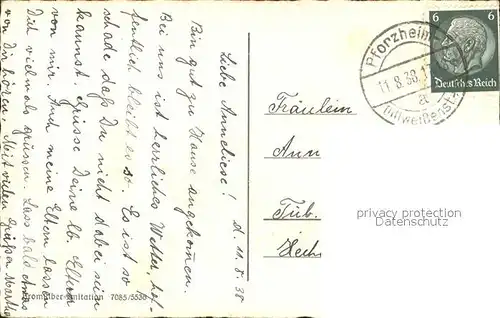 d. 11.8.38
Liebe Anneliese!
Bin gut zu Hause angekommen.
Bei uns ist herrliches Wetter, hof-
fentlich bleibt es so. Es ist so
schade daß Du nicht dabei sein
kannst. Grüsse Deine lb. Eltern
von mir. Auch meine Eltern lassen
Dich vielmals grüssen. Lass bald etwas
von Dir hören. Mit vielen Grüßen Martha
Fräulein
Ann
Tüb.
Hech
6 6
Deutsches Reich
Pforzheim
11.8.38.
a
privacy protection
Datenschutz
Bromsilber-Imitation 7085/5538